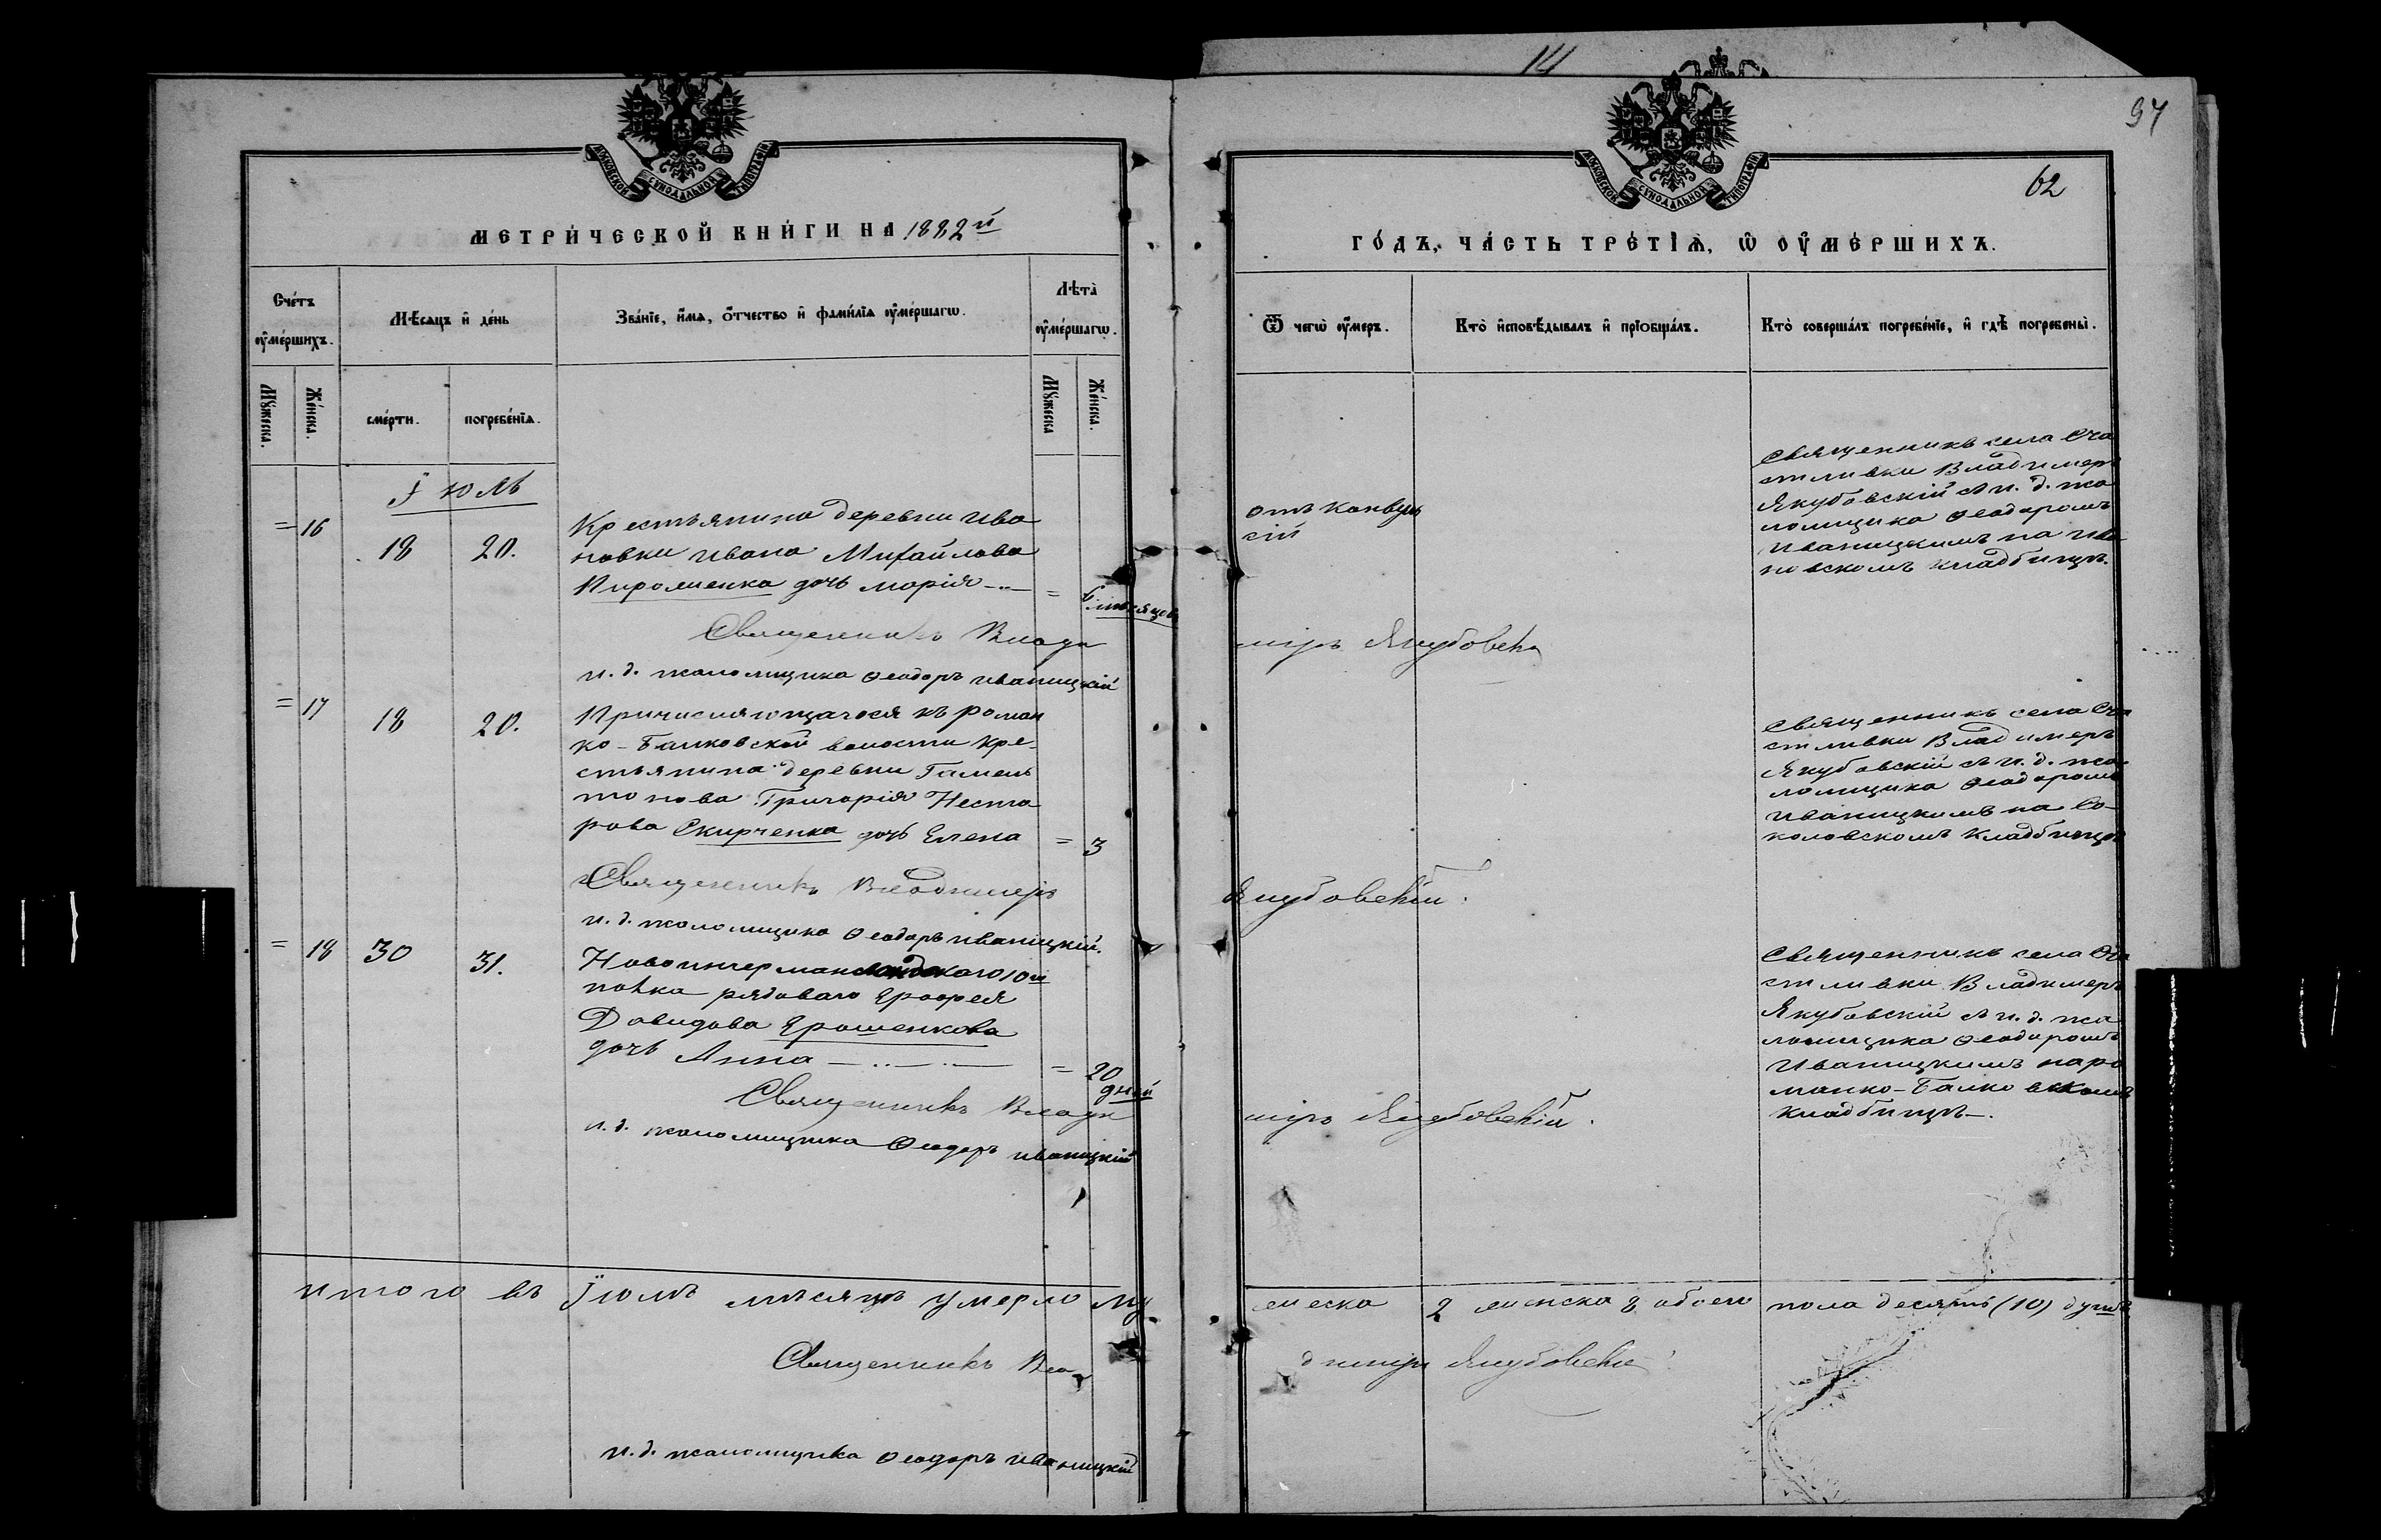 14
97
МОСКОВСКОЙ СѴНОДАЛЬНОЙ ТИПОГРАФІИ
МОСКОВСКОЙ СѴНОДАЛЬНОЙ ТИПОГРАФІИ
62
МЕТРИ́ЧЕСКОЙ КНИ́ГИ НА 1882й
ГО́ДЪ, ЧА́СТЬ ТРЕ́ТІѦ, Ѡ ОУ҆МЕ́РШИХЪ.
Сче́тъ оу҆ме́ршихъ.
Мѣ́сѧцъ и҆ де́нь
Зва́нїе, и҆́мѧ, о҆́тчество и҆ фами́лїѧ оу҆ме́ршагѡ.
Лѣта̀ оу҆ме́ршагѡ.
Ѿ чегѡ̀ оу҆́меръ.
Кто̀ и҆сповѣ́дывалъ и҆ прїобща́лъ.
Кто̀ соверша́лъ погребе́нїе, и҆ гдѣ̀ погребены̀.
Мꙋ́жеска.
Же́нска.
сме́рти.
погребе́нїѧ.
Мꙋ́жеска
Же́нска.
Іюль
= 16
18
20.
Крестьянина деревни Ива
новки Ивана Михайлова
Пирошенка дочь Марія
= 6 мѣсяцов
отъ конвуль
сій
Священникъ села Сча
стливки Владимеръ
Якубовскій съ и. д. пса
ломщика Ѳеодоромъ
Иваницкимъ на Ива
новскомъ кладбищѣ.
Священникъ Влади
миръ Якубовскі
и. д. псаломщика Ѳеодоръ Иваницкій
= 17
18
20.
Причисляющагося къ Роман
ко-Балковской волости кре-
стьянина деревни Гамель
тонова Григорія Несто
рова Скирченка дочь Елена
= 3
Священникъ села Сча
стливки Владимеръ
Якубовскій съ и. д. пса-
ломщика Ѳеодоромъ
Иваницкимъ на Со-
коловскомъ кладбищѣ
Священникъ Владимиръ
Якубовскій.
и. д. псаломщика Ѳеодоръ Иваницкій.
= 18
30
31.
Новоингерманландскаго 10й
полка рядоваго Ерофея
Давидова Ерошенкова
дочь Анна
= 20 дней
Священникъ села Сча
стливки Владимеръ
Якубовскій съ и. д. пса
ломщика Ѳеодоромъ
Иваницкимъ на Ро
манко-Балковскомъ
кладбищѣ.
Священникъ Влади
миръ Якубовскій.
и. д. псаломщика Ѳеодоръ Иваницкій
Итого въ Іюлѣ мѣсяцѣ умерло му
жеска 2 женска 8 обоего пола десять (10) душъ
Священникъ Вла
димиръ Якубовскі
и. д. псаломщика Ѳеодоръ Иваницкій